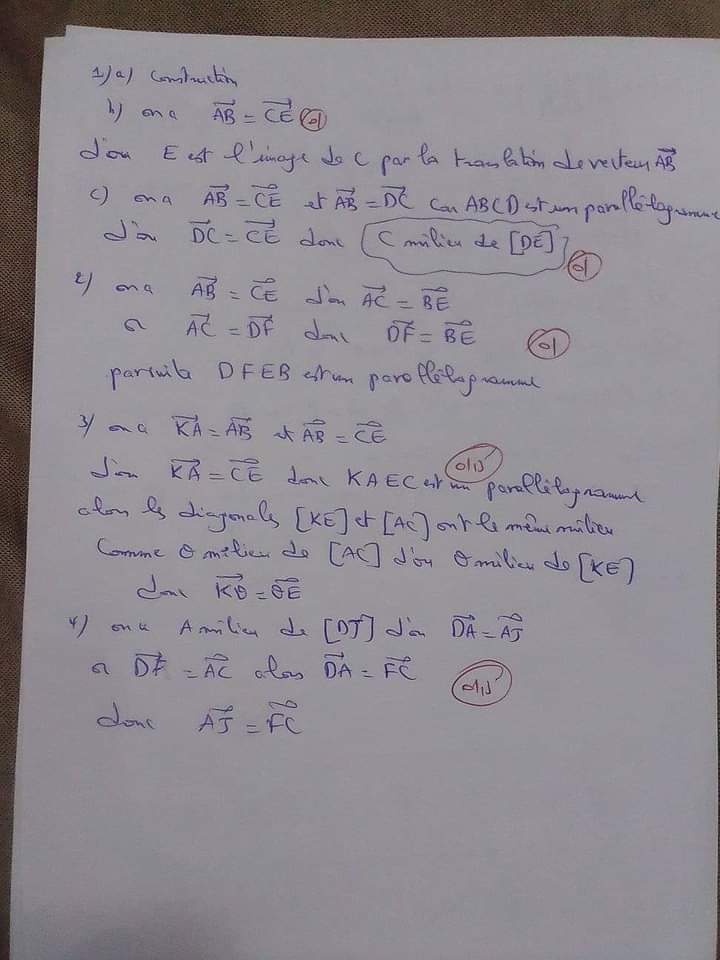 1) a) Construction
b) on a AB⃗ = CE⃗ 01
d'où E est l'image de C par la translation de vecteur AB⃗
c) on a AB⃗ = CE⃗ et AB⃗ = DC⃗ car ABCD est un parallélogramme
d'où DC⃗ = CE⃗ donc C milieu de [DE] 01
2) on a AB⃗ = CE⃗ d'où AC⃗ = BE⃗
or AC⃗ = DF⃗ donc DF⃗ = BE⃗ 01
par suite DFEB est un parallélogramme
3) on a KA⃗ = AB⃗ et AB⃗ = CE⃗
d'où KA⃗ = CE⃗ donc KAEC est un parallélogramme
alors les diagonales [KE] et [AC] ont le même milieu
Comme O milieu de [AC] d'où O milieu de [KE]
donc KO⃗ = OE⃗
4) on a A milieu de [DJ] d'où DA⃗ = AJ⃗
or DF⃗ = AC⃗ alors DA⃗ = FC⃗
donc AJ⃗ = FC⃗